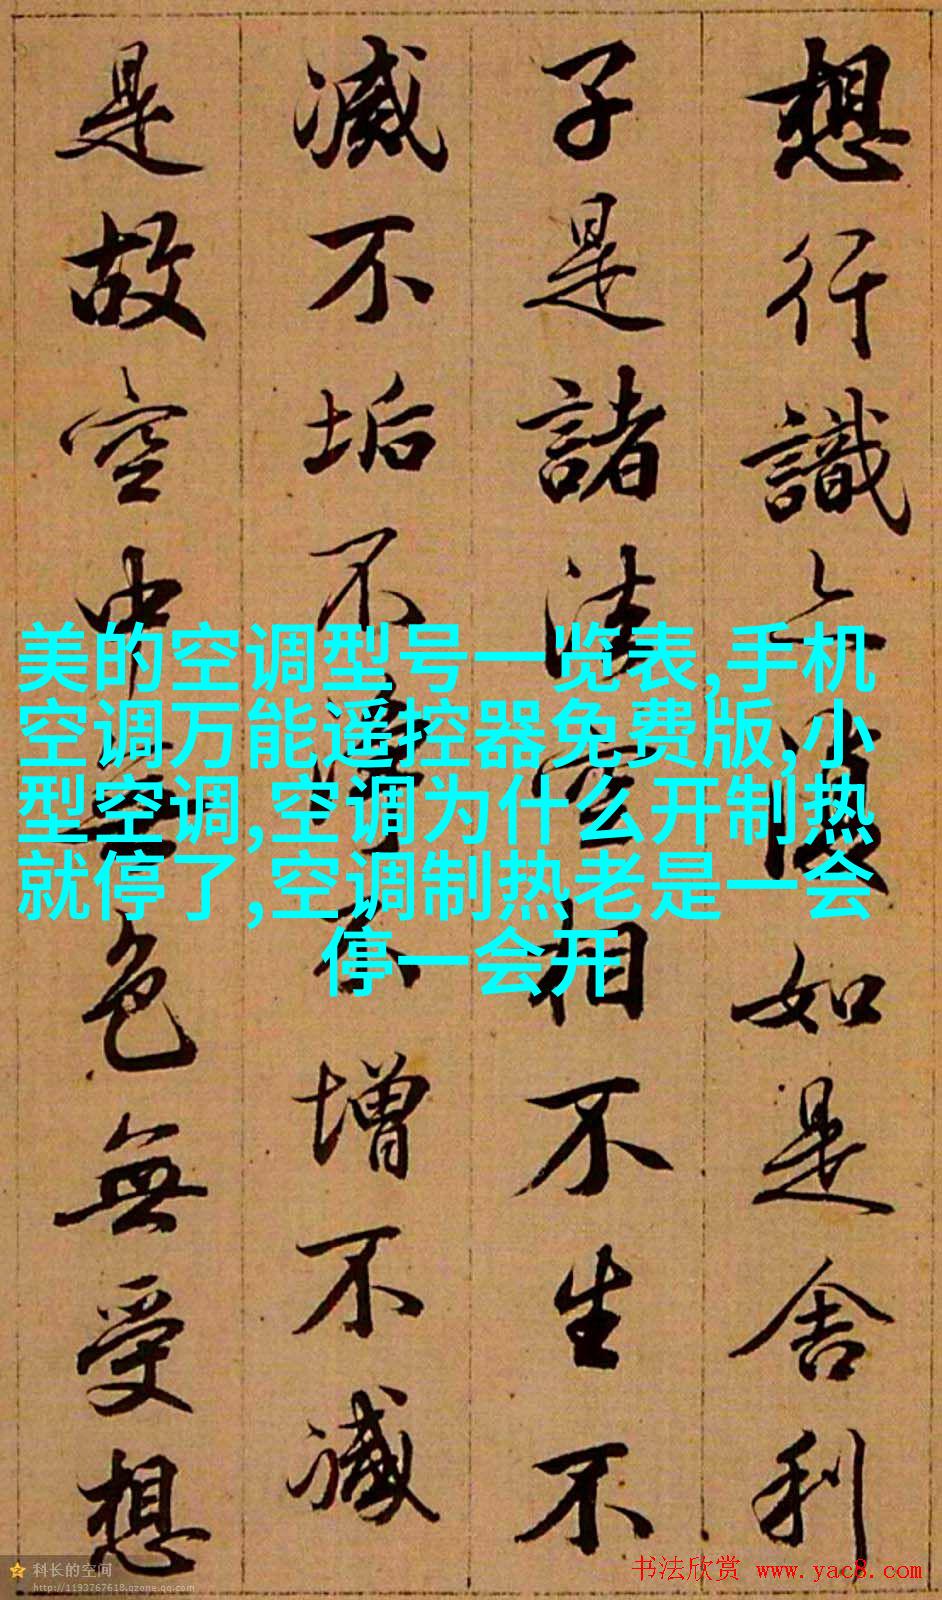 想行識亦復如是舍利
子是諸法空相不生不
滅不垢不淨不增不減
是故空中無色無受想
美的空调型号一览表,手机
空调万能遥控器免费版,小
型空调,空调为什么开制热
就停了,空调制热老是一会
停一会开
科长的空间
http://1193767618.qzone.qq.com
书法欣赏 www.yac8.com